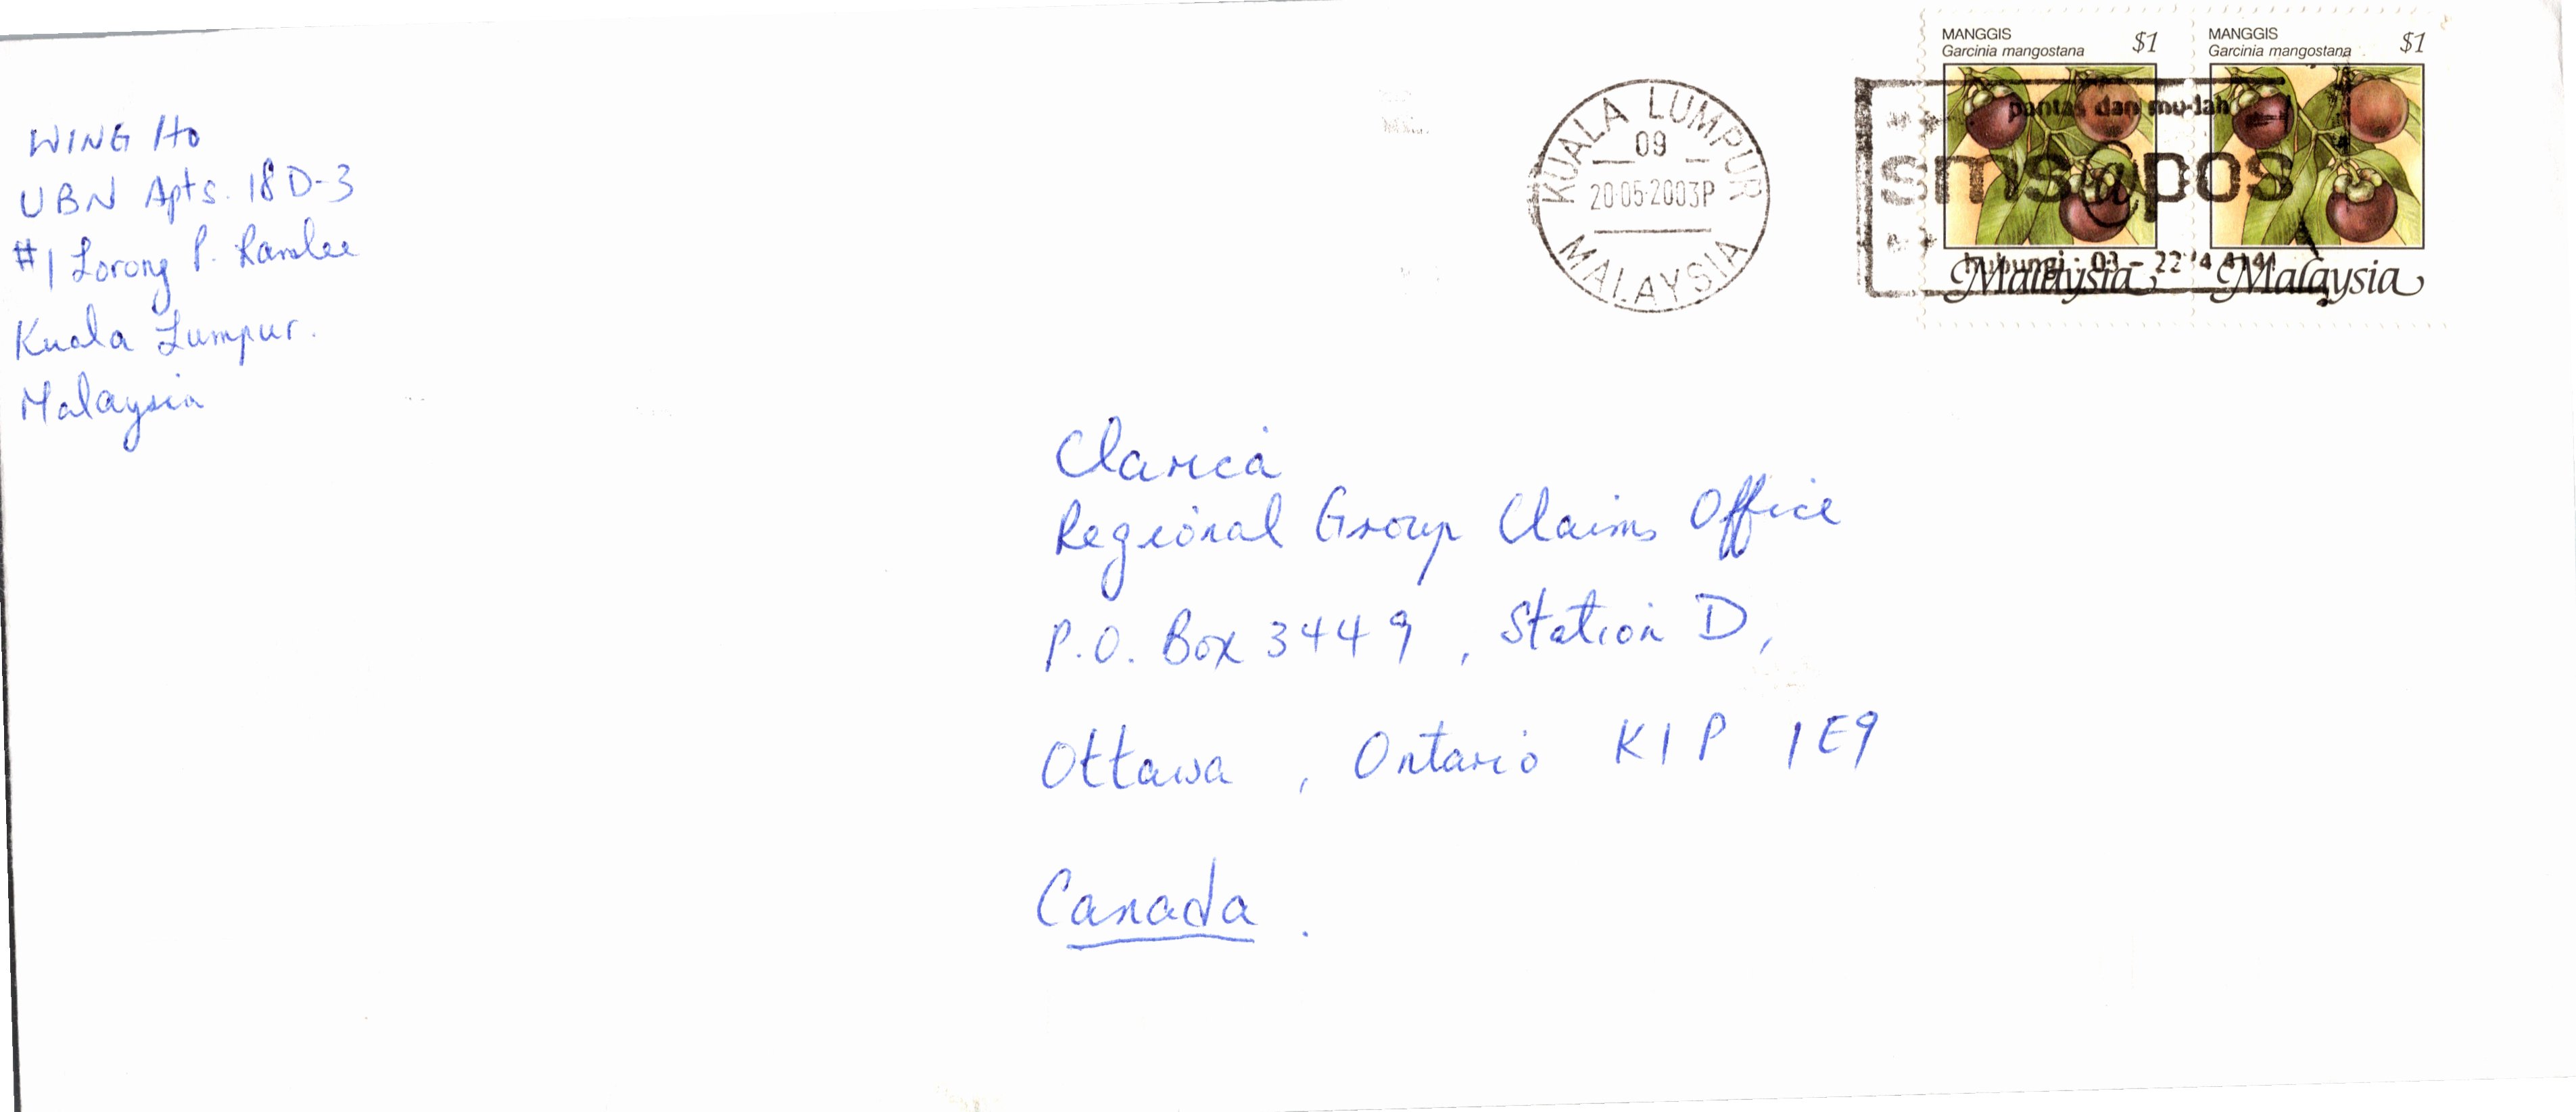 WING HO
UBN Apts. 18D-3
#1 Lorong P. Ramlee
Kuala Lumpur.
Malaysia
KUALA LUMPUR
09
20·05·2003P
MALAYSIA
MANGGIS
Garcinia mangostana
$1
Malaysia
MANGGIS
Garcinia mangostana
$1
Malaysia
pantas dan mudah
sms@pos
hubungi : 03 -
Clarica
Regional Group Claims Office
P.O. Box 3449, Station D,
Ottawa, Ontario K1P 1E9
Canada.